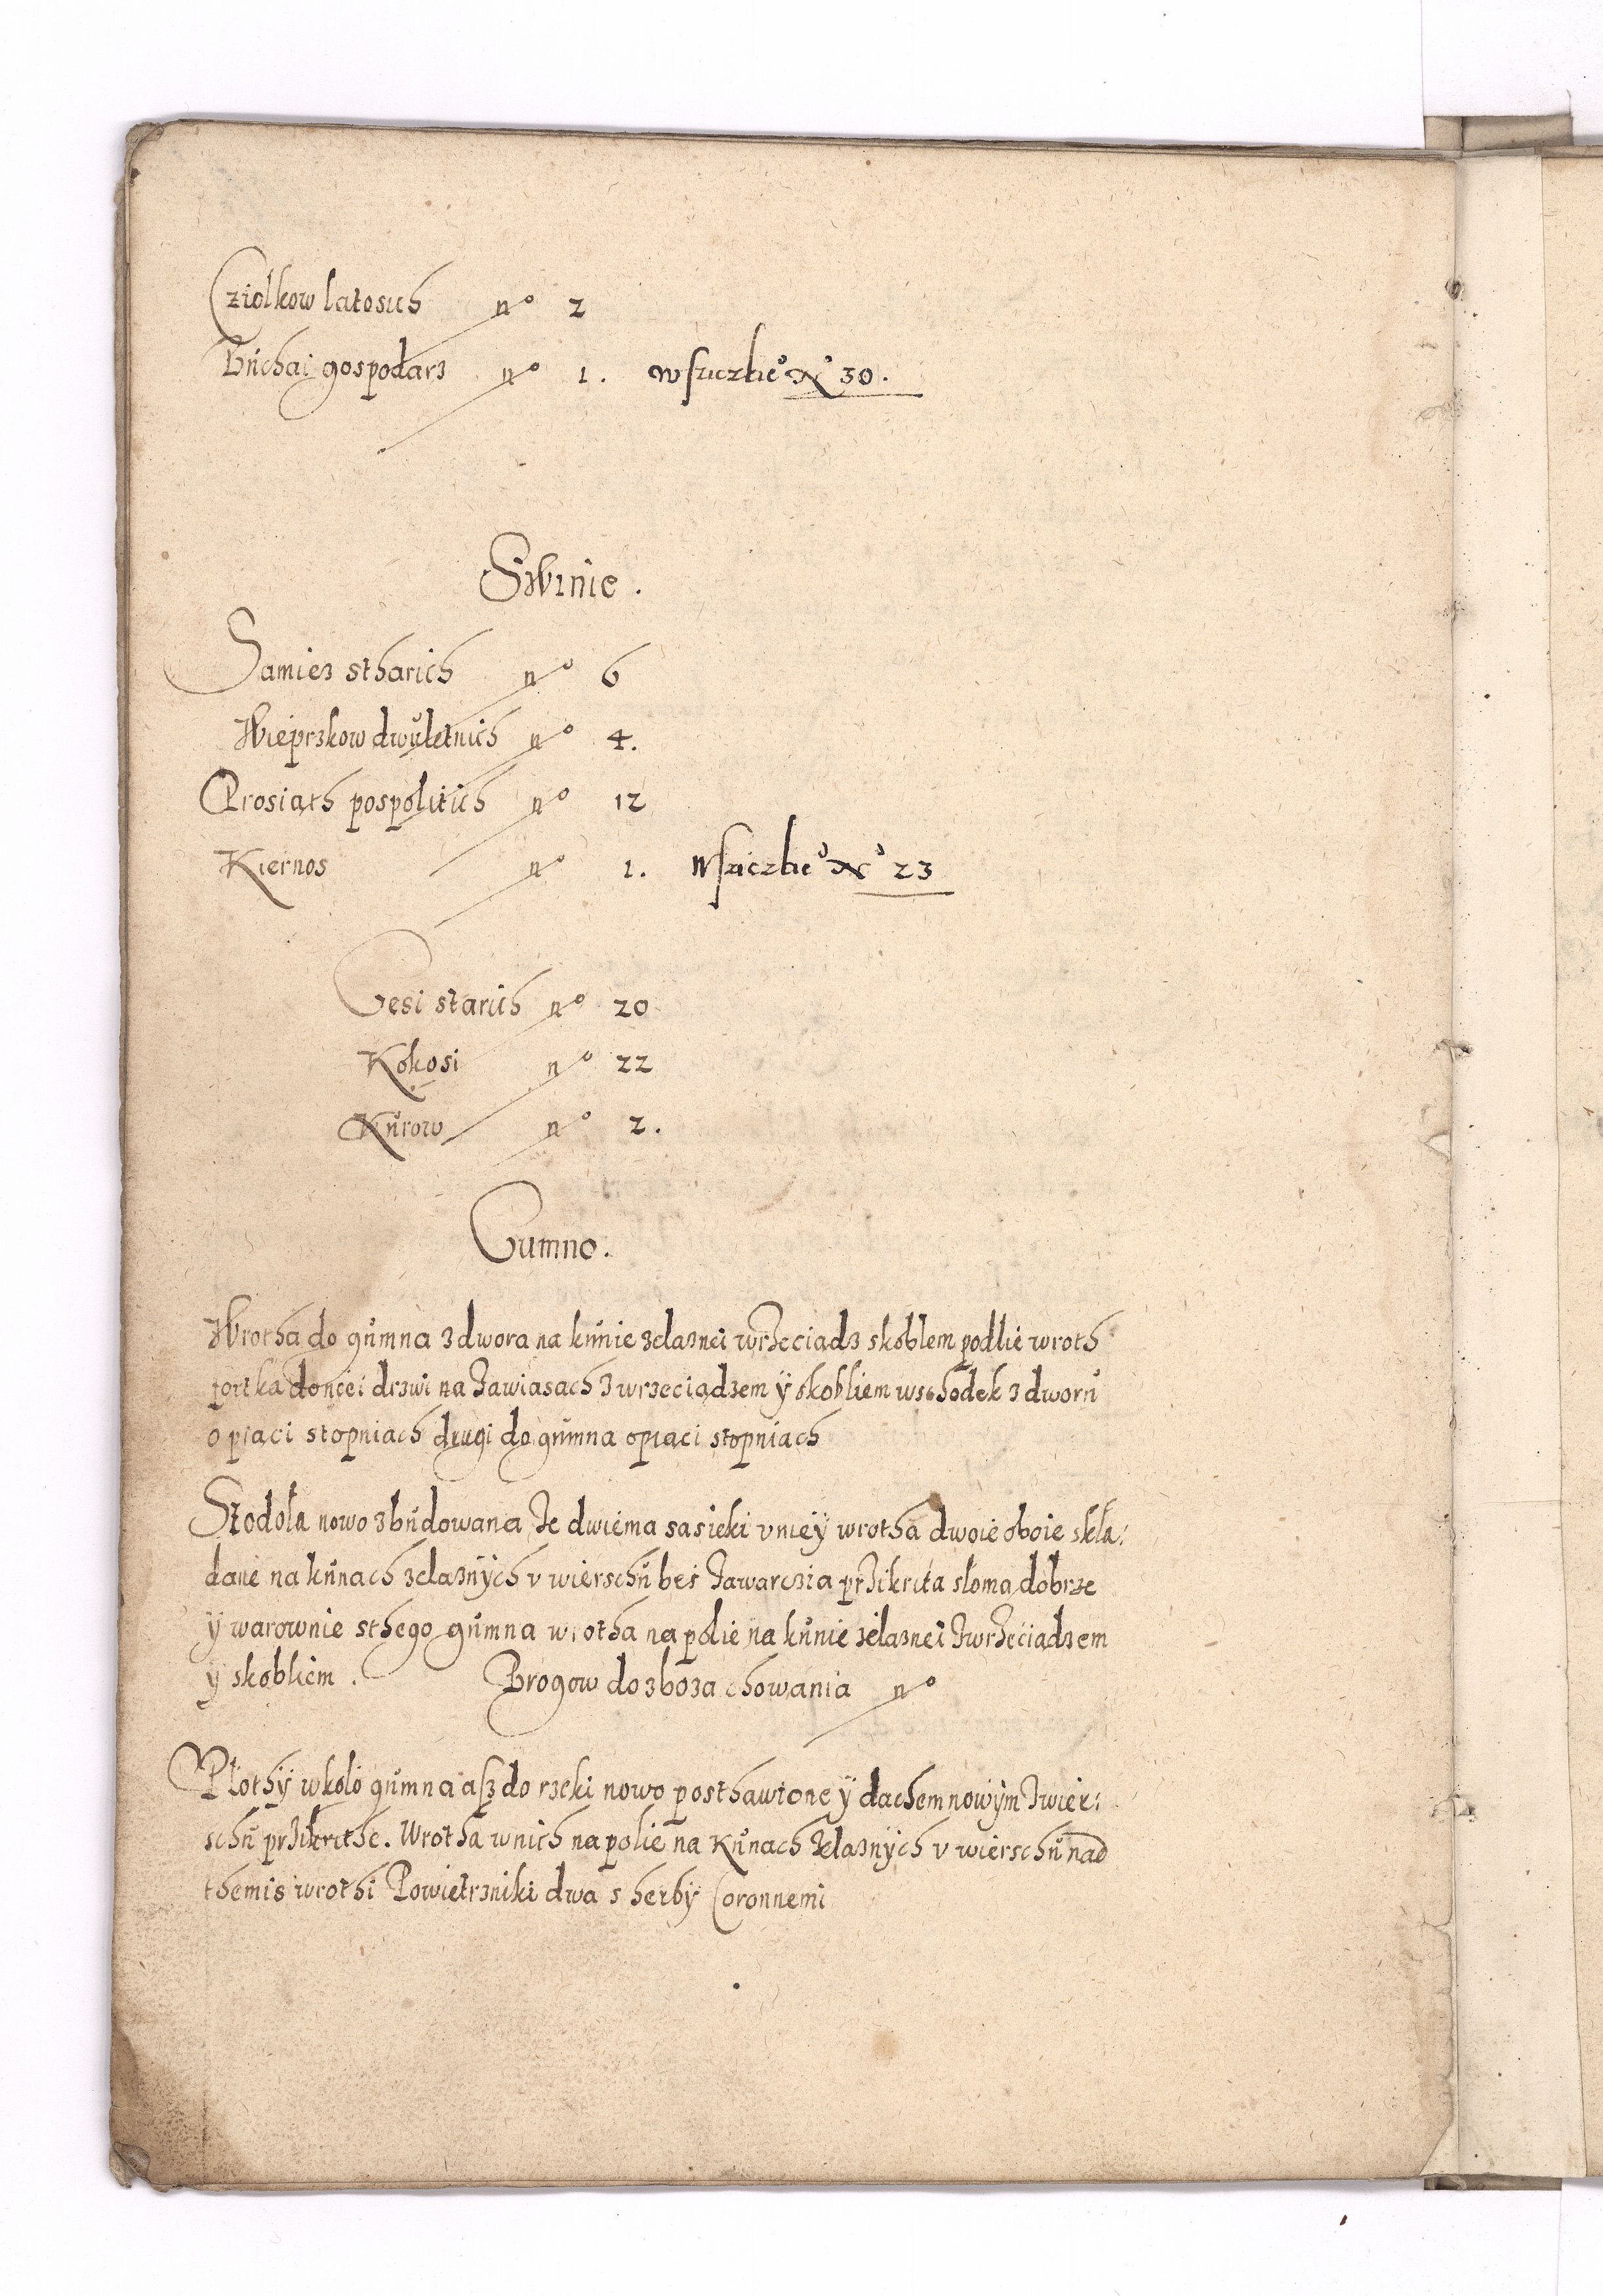 Cziolkow latosich nº 2
Bůchai gospodarz nº 1. W sziczkie Nº 30.
Swinie.
Samiez stharich nº 6
Wieprzkow dwůletnich nº 4.
Prosiąth pospolitich nº 12
Kiernos nº 1. W sziczkie Nº 23
Gęsi starich nº 20
Kokosi nº 22
Kůrow nº 2.
Gumno.
Wrotha do gůmna z dwora na kůnie zelaznei wrzeciądz skoblem podlie wroth
fortka do niei drzwi na zawiasach z wrzeciądzem ÿ skobliem wschodek z dworů
o piąci stopniach drugi do gůmna o piąci stopniach
Stodoła nowo zbůdowana ze dwiema sąsieki v nieÿ wrotha dwoie oboie skła:
dane na kůnach zelaznÿch v wierschů bes zawarczia przikrita słomą dobrze
ÿ warownie s thego gůmna wrotha na polie na kůnie zelaznei z wrzeciądzem
ÿ skobliem. Brogow do zboza chowania nº
Płothÿ wkoło gůmna asz do rzeki nowo posthawione ÿ dachem nowÿm z wier:
schů przikrithe. Wrotha w nich na polie na kůnach zelaznÿch v wierschů nad
themis wrothi Powietrzniki dwa s herbÿ Coronnemi